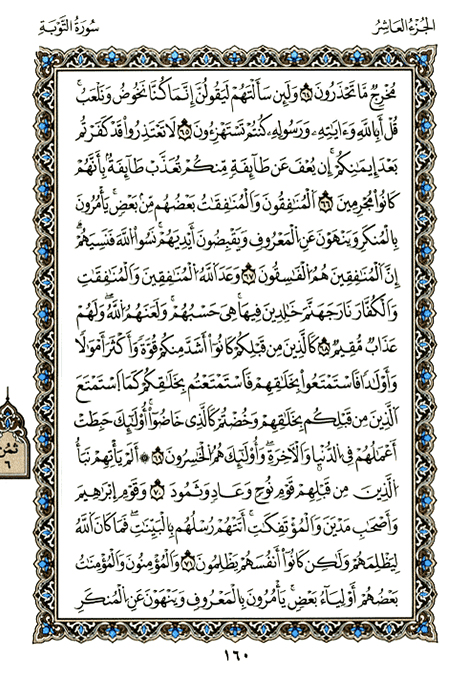 سُورَةُ التَّوْبَةِ الجُزْءُ العَاشِرُ
مُخْرِجٌ مَّا تَحْذَرُونَ ٦٤ وَلَئِن سَأَلْتَهُمْ لَيَقُولُنَّ إِنَّمَا كُنَّا نَخُوضُ وَنَلْعَبُ
قُلْ أَبِاللَّهِ وَءَايَٰتِهِ وَرَسُولِهِ كُنتُمْ تَسْتَهْزِءُونَ ٦٥ لَا تَعْتَذِرُوا قَدْ كَفَرْتُم
بَعْدَ إِيمَٰنِكُمْ إِن يُعْفَ عَن طَآئِفَةٍ مِّنكُمْ تُعَذَّبْ طَآئِفَةٌ بِأَنَّهُمْ
كَانُوا مُجْرِمِينَ ٦٦ الْمُنَٰفِقُونَ وَالْمُنَٰفِقَٰتُ بَعْضُهُم مِّنْ بَعْضٍ يَأْمُرُونَ
بِالْمُنكَرِ وَيَنْهَوْنَ عَنِ الْمَعْرُوفِ وَيَقْبِضُونَ أَيْدِيَهُمْ نَسُوا اللَّهَ فَنَسِيَهُمْ
إِنَّ الْمُنَٰفِقِينَ هُمُ الْفَٰسِقُونَ ٦٧ وَعَدَ اللَّهُ الْمُنَٰفِقِينَ وَالْمُنَٰفِقَٰتِ
وَالْكُفَّارَ نَارَ جَهَنَّمَ خَٰلِدِينَ فِيهَا هِيَ حَسْبُهُمْ وَلَعَنَهُمُ اللَّهُ وَلَهُمْ
عَذَابٌ مُّقِيمٌ ٦٨ كَالَّذِينَ مِن قَبْلِكُمْ كَانُوا أَشَدَّ مِنكُمْ قُوَّةً وَأَكْثَرَ أَمْوَٰلًا
وَأَوْلَٰدًا فَاسْتَمْتَعُوا بِخَلَٰقِهِمْ فَاسْتَمْتَعْتُم بِخَلَٰقِكُمْ كَمَا اسْتَمْتَعَ
الَّذِينَ مِن قَبْلِكُم بِخَلَٰقِهِمْ وَخُضْتُمْ كَالَّذِي خَاضُوا أُوْلَٰئِكَ حَبِطَتْ
أَعْمَٰلُهُمْ فِي الدُّنْيَا وَالْآخِرَةِ وَأُوْلَٰئِكَ هُمُ الْخَٰسِرُونَ ٦٩ أَلَمْ يَأْتِهِمْ نَبَأُ
الَّذِينَ مِن قَبْلِهِمْ قَوْمِ نُوحٍ وَعَادٍ وَثَمُودَ ٧٠ وَقَوْمِ إِبْرَٰهِيمَ
وَأَصْحَٰبِ مَدْيَنَ وَالْمُؤْتَفِكَٰتِ أَتَتْهُمْ رُسُلُهُم بِالْبَيِّنَٰتِ فَمَا كَانَ اللَّهُ
لِيَظْلِمَهُمْ وَلَٰكِن كَانُوا أَنفُسَهُمْ يَظْلِمُونَ ٧١ وَالْمُؤْمِنُونَ وَالْمُؤْمِنَٰتُ
بَعْضُهُمْ أَوْلِيَآءُ بَعْضٍ يَأْمُرُونَ بِالْمَعْرُوفِ وَيَنْهَوْنَ عَنِ الْمُنكَرِ
ثمن
٦
١٦٠